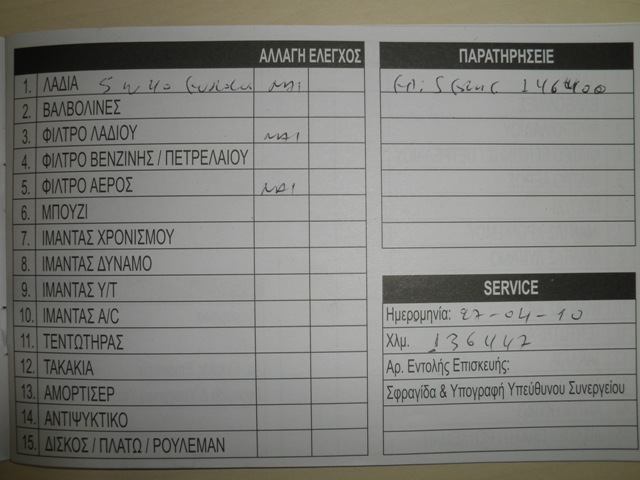 ΑΛΛΑΓΗ ΕΛΕΓΧΟΣ
1. ΛΑΔΙΑ 5 w 40 ΝΑΙ
2. ΒΑΛΒΟΛΙΝΕΣ
3. ΦΙΛΤΡΟ ΛΑΔΙΟΥ ΝΑΙ
4. ΦΙΛΤΡΟ ΒΕΝΖΙΝΗΣ / ΠΕΤΡΕΛΑΙΟΥ
5. ΦΙΛΤΡΟ ΑΕΡΟΣ ΝΑΙ
6. ΜΠΟΥΖΙ
7. ΙΜΑΝΤΑΣ ΧΡΟΝΙΣΜΟΥ
8. ΙΜΑΝΤΑΣ ΔΥΝΑΜΟ
9. ΙΜΑΝΤΑΣ Υ/Τ
10. ΙΜΑΝΤΑΣ A/C
11. ΤΕΝΤΩΤΗΡΑΣ
12. ΤΑΚΑΚΙΑ
13. ΑΜΟΡΤΙΣΕΡ
14. ΑΝΤΙΨΥΚΤΙΚΟ
15. ΔΙΣΚΟΣ / ΠΛΑΤΩ / ΡΟΥΛΕΜΑΝ
ΠΑΡΑΤΗΡΗΣΕΙΕ
146400
SERVICE
Ημερομηνία: 27-04-10
Χλμ. 136442
Αρ. Εντολής Επισκευής:
Σφραγίδα & Υπογραφή Υπεύθυνου Συνεργείου